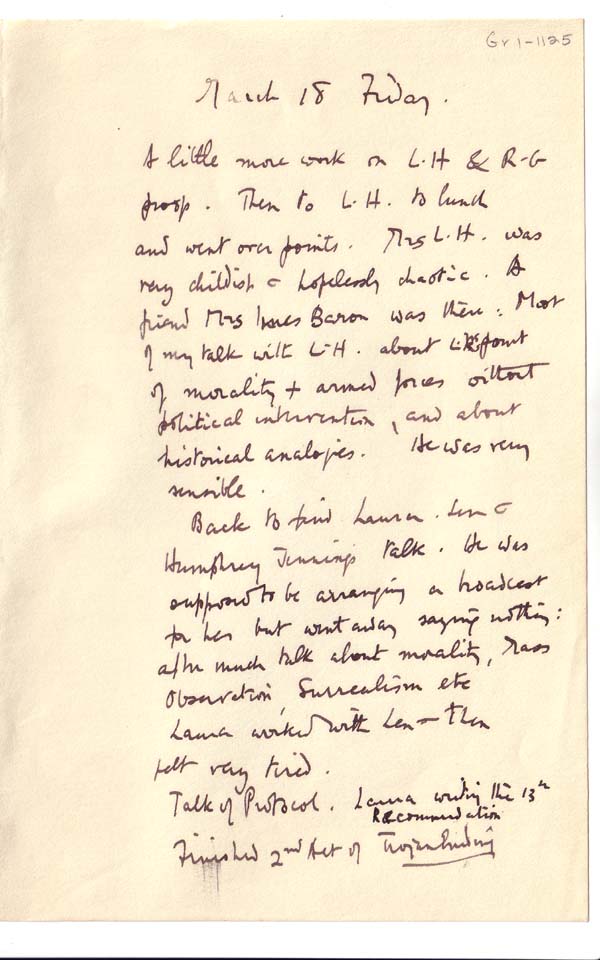 Gr 1-1125
March 18 Friday.
A little more work on L.H & R-G
proop. Then to L.H. to lunch
and went over points. Mrs L.H. was
very childish & hopelessly chaotic. A
friend Mrs Baron was there: Most
of my talk with L-H. about point
of morality + armed forces without
political intervention, and about
historical analogies. He was very
sensible.
Back to find Laura. Len &
Humphrey Jennings talk. He was
supposed to be arranging a broadcast
for her but went away saying nothing:
after much talk about morality, Mass
Observation, Surrealism etc
Laura worked with Len - then
felt very tired.
Talk of Protocol. Laura writing the 13th
Recommendation
Finished 2nd Act of Trojan Ending